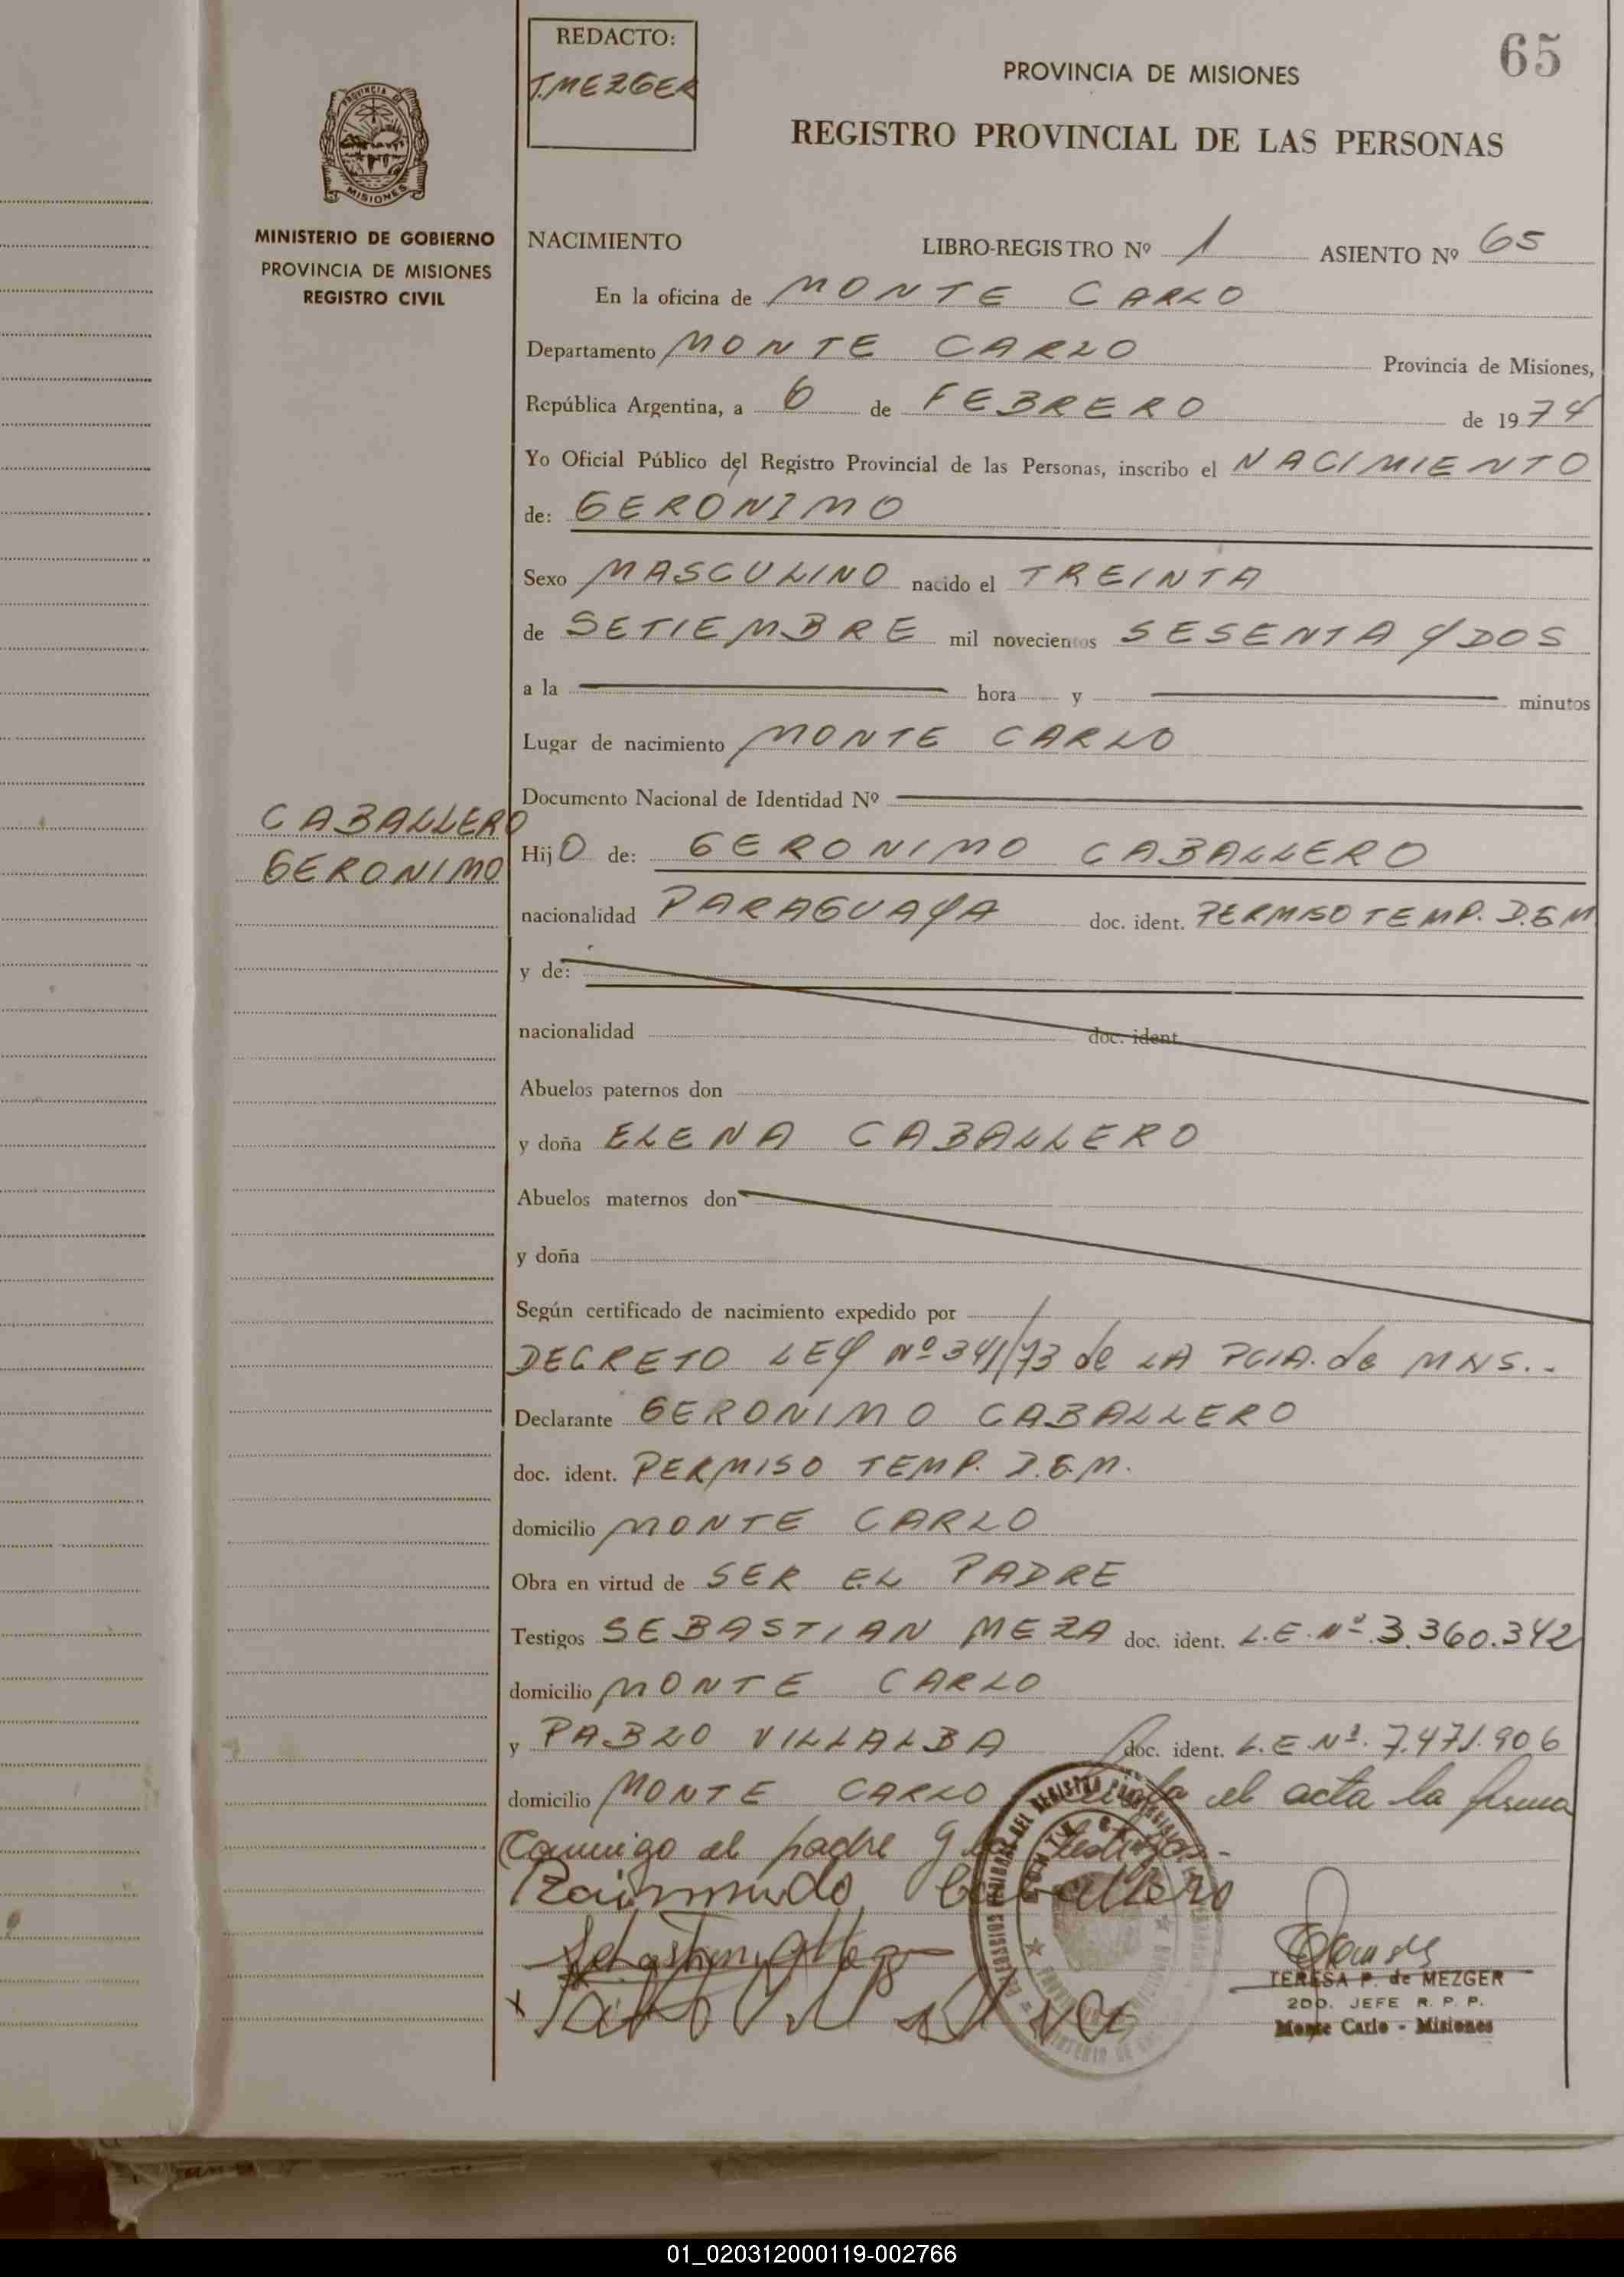 65
REDACTO:
T. MEZGER
PROVINCIA DE MISIONES
REGISTRO PROVINCIAL DE LAS PERSONAS
PROVINCIA DE
MISIONES
MINISTERIO DE GOBIERNO
PROVINCIA DE MISIONES
REGISTRO CIVIL
NACIMIENTO LIBRO-REGISTRO Nº 1 ASIENTO Nº 65
En la oficina de MONTE CARLO
Departamento MONTE CARLO Provincia de Misiones,
República Argentina, a 6 de FEBRERO de 1974
Yo Oficial Público del Registro Provincial de las Personas, inscribo el NACIMIENTO
de: GERONIMO
Sexo MASCULINO nacido el TREINTA
de SETIEMBRE mil novecientos SESENTA Y DOS
a la hora y minutos
Lugar de nacimiento MONTE CARLO
Documento Nacional de Identidad Nº
CABALLERO
GERONIMO
Hijo de: GERONIMO CABALLERO
nacionalidad PARAGUAYA doc. ident. PERMISO TEMP. D.G.M
y de:
nacionalidad doc. ident.
Abuelos paternos don
y doña ELENA CABALLERO
Abuelos maternos don
y doña
Según certificado de nacimiento expedido por /
DECRETO LEY Nº 341/73 de LA PCIA. de MNS..-
Declarante GERONIMO CABALLERO
doc. ident. PERMISO TEMP. D.G.M.
domicilio MONTE CARLO
Obra en virtud de SER EL PADRE
Testigos SEBASTIAN MEZA doc. ident. L.E. Nº 3.360.342
domicilio MONTE CARLO
y PABLO VILLALBA doc. ident. L.E Nº. 7.471.906
domicilio MONTE CARLO el acta la firma
Conmigo el padre y testigos.-
Raimundo Caballero
TERESA P. de MEZGER
2DO. JEFE R. P. P.
Monte Carlo - Misiones
01_020312000119-002766